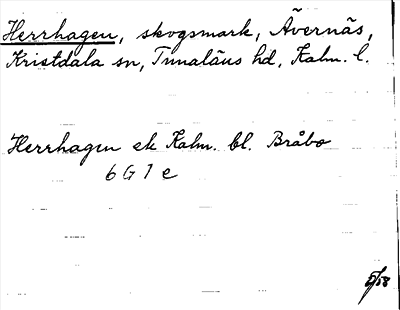 Herrhagen, skogsmark, Ävernäs,
Kristdala sn, Tunaläns hd, Kalm. l.
Herrhagen ek Kalm. bl. Bråbo
6 G 1 e
5/58